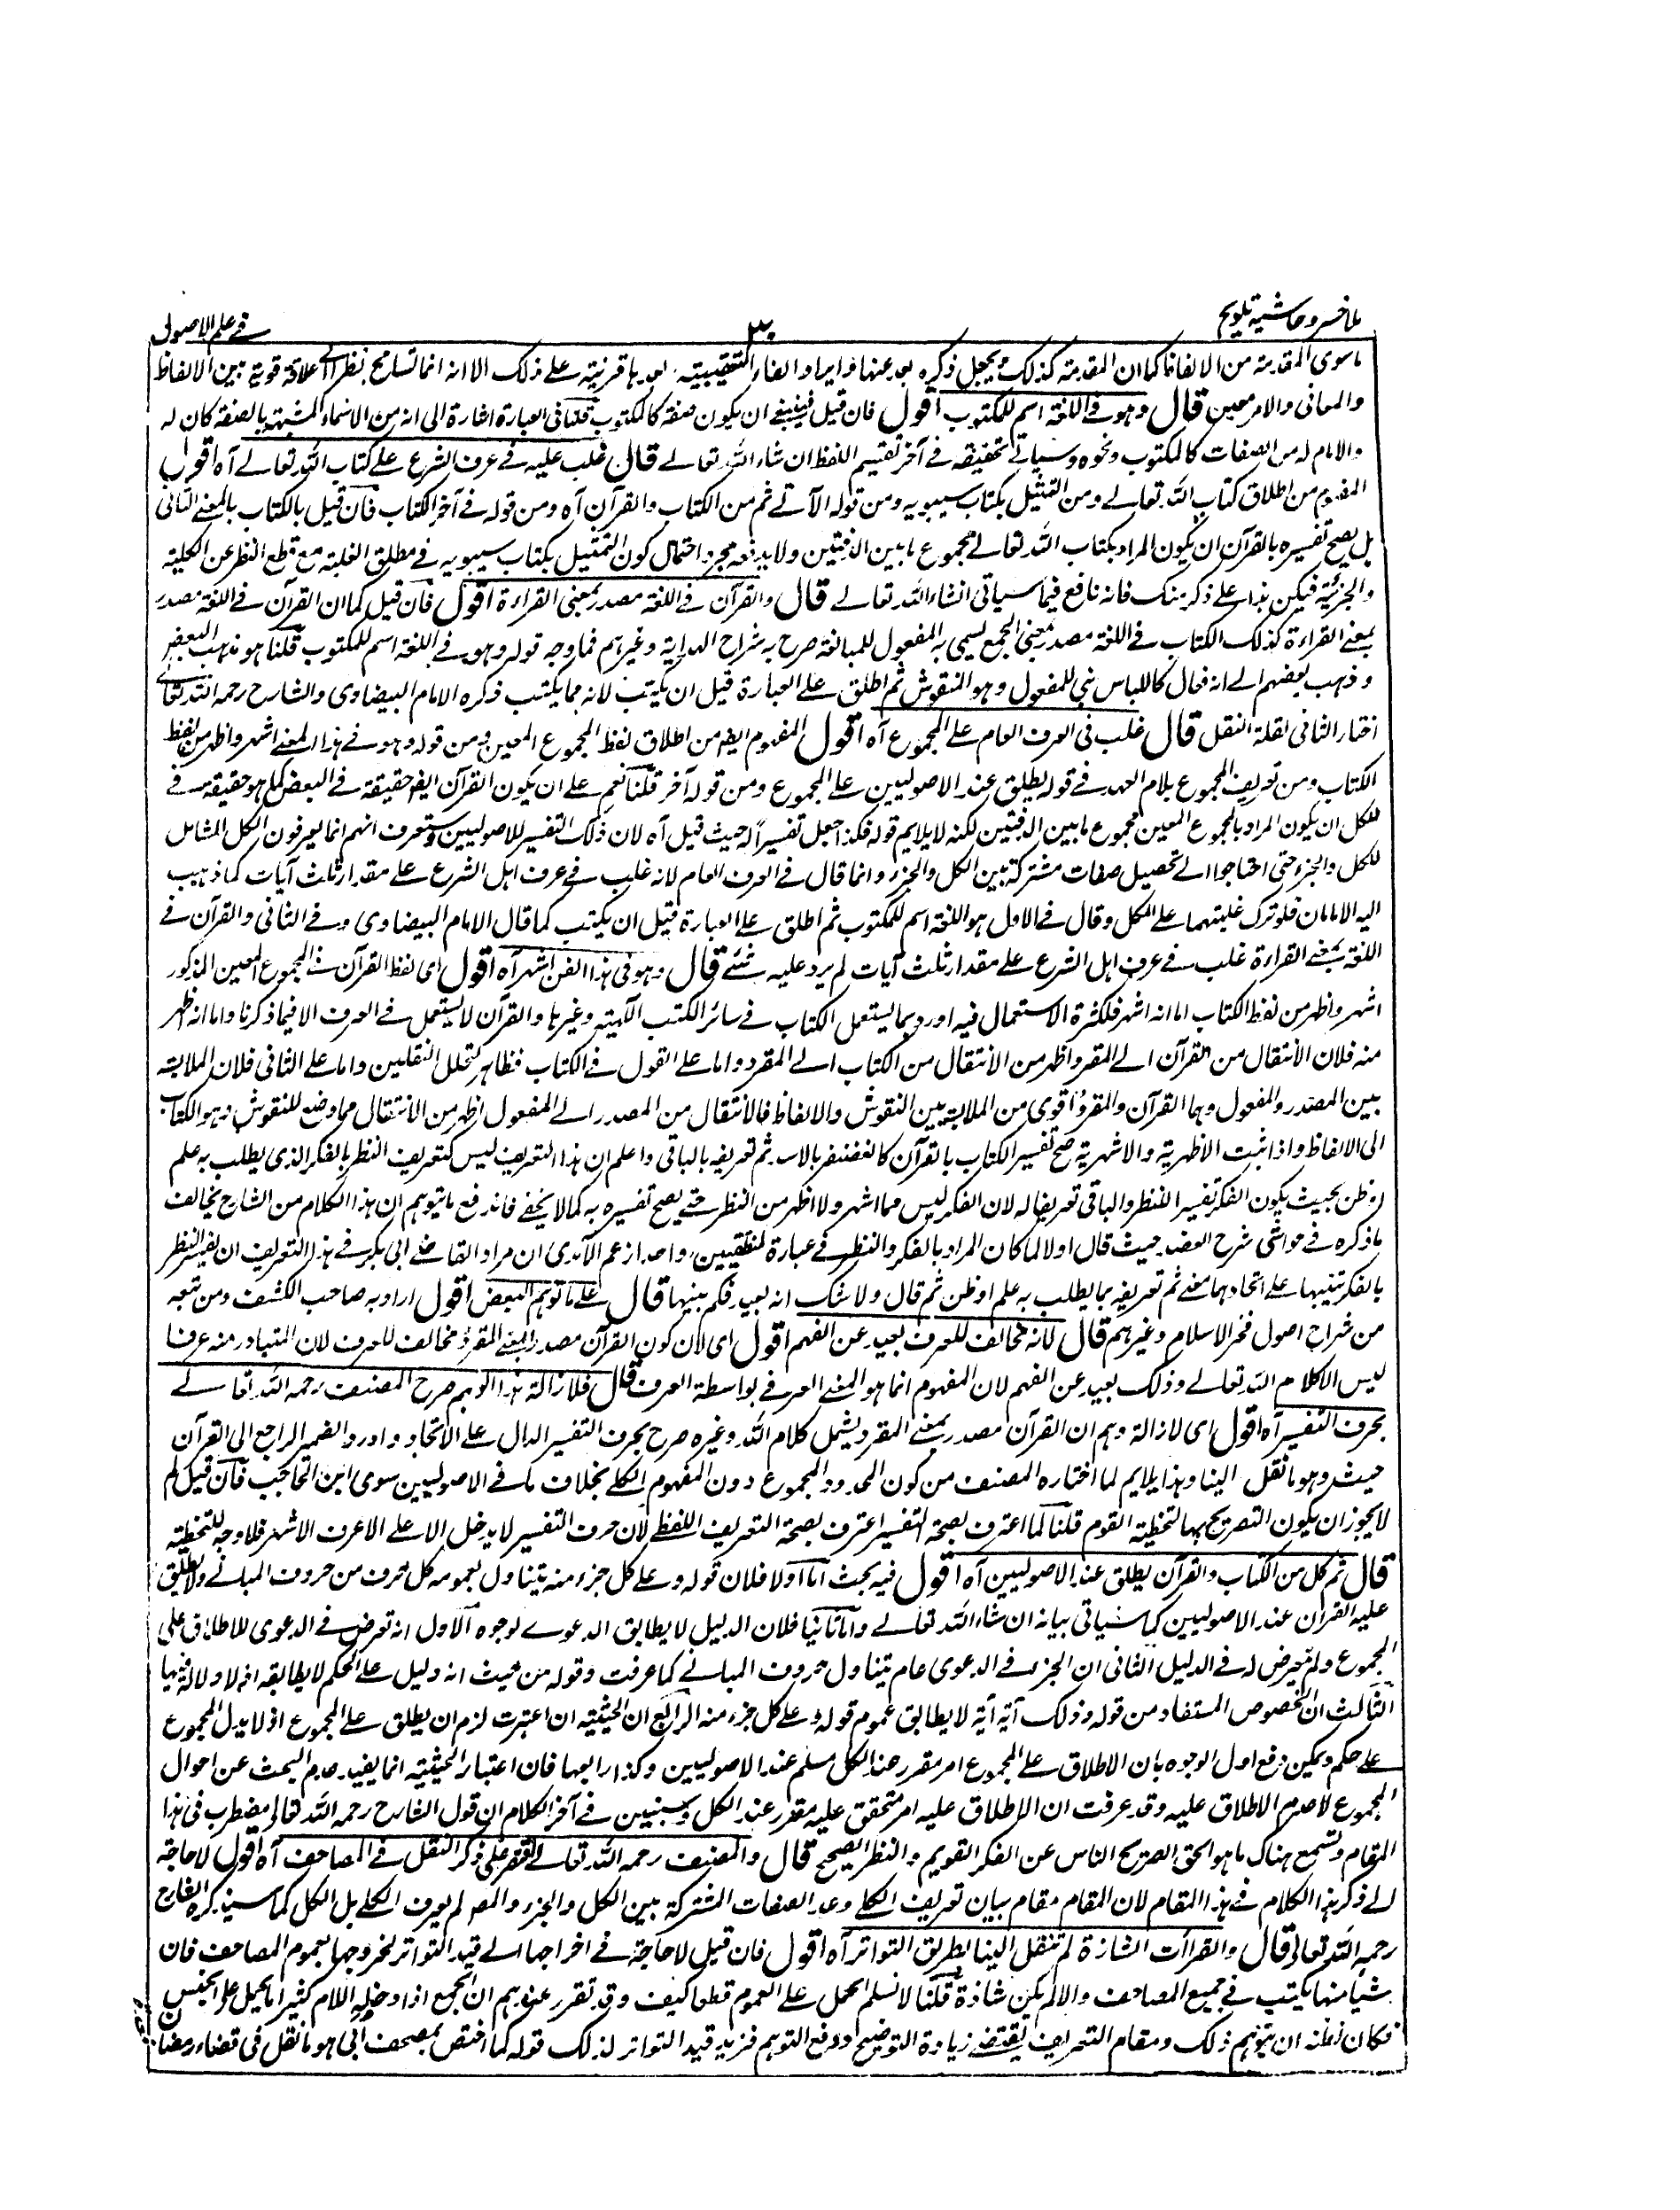 ملا خسرو حاشیه تلویح
۳۰
فے علم الاصول
ما سوى المقدمة من الالفاظ كما ان المقدمة كذلك ويجعل ذكره بعد عنها وايراد الفاء التعقيبية بعدها قرينة على ذلك الا انه انما تسامح نظرا الى علاقة قوية بين الالفاظ
والمعانى والامر معين قال وهو فے اللغة اسم للمكتوب اقول فان قيل فينبغے ان يكون صفة كالمكتوب قلنا فى العبارة اشارة الى انه من الاسماء المشبهة بالصفة كان له
والامام له من الصفات كالمكتوب ونحوه وسياتے تحقيقه فے آخر تقسيم اللفظ ان شاء الله تعالے قال غلب عليه فے عرف الشرع علے كتاب الله تعالے آه اقول
المفهوم من اطلاق كتاب الله تعالے ومن التمثيل بكتاب سيبويه ومن قوله الآتے ثم من الكتاب والقرآن آه ومن قوله فے آخر الكتاب فان قيل بالكتاب بالمعنے الثانى
بل يصح تفسيره بالقرآن ان يكون المراد بكتاب الله تعالے مجموع ما بين الدفتين ولا يدفعه مجرد احتمال كون التمثيل بكتاب سيبويه فے مطلق الغلبة مع قطع النظر عن الكلية
والجزئية فليكن هذا علے ذكر منك فانه نافع فيما سياتى انشاء الله تعالے قال والقرآن فے اللغة مصدر بمعنى القراءة اقول فان قيل كما ان القرآن فے اللغة مصدر
بمعنے القراءة كذلك الكتاب فے اللغة مصدر بمعنى الجمع سمى به المفعول للمبالغة صرح به شراح الهداية وغيرهم فما وجه قوله وهو فے اللغة اسم للمكتوب قلنا هو مذهب البعض
وذهب بعضهم الے انه فعال كاللباس بنى للمفعول وهو المنقوش ثم اطلق علے العبارة قبل ان يكتب لانه مما يكتب ذكره الامام البيضاوى والشارح رحمه الله تعالے
اختار الثانى لقلة النقل قال غلب فى العرف العام علے المجموع آه اقول المفهوم ايضا من اطلاق لفظ المجموع المعين ومن قوله وهو فے هذا المعنے اشهر واظهر من لفظ
الكتاب ومن تعريف المجموع بلام العهد فے قوله يطلق عند الاصوليين علے المجموع ومن قوله آخر قلنا نعم علے ان يكون القرآن ايضا حقيقة فے البعض كما هو حقيقة فے
للكل ان يكون المراد بالمجموع المعين مجموع ما بين الدفتين لكنه لا يلايم قوله فلذا جعل تفسيرا له حيث قيل آه لان ذلك التفسير للاصوليين وستعرف انهم انما يعرفون الكل الشامل
للكل والجزء حتى احتاجوا الے تحصيل صفات مشتركة بين الكل والجزء وانما قال فے العرف العام لانه غلب فے عرف اهل الشرع علے مقدار ثلث آيات كما ذهب
اليه الامامان فلو ترك غلبتهما علے الكل وقال فے الاول هو اللغة اسم للمكتوب ثم اطلق علے العبارة قبل ان يكتب كما قال الامام البيضاوى وفے الثانى والقرآن فے
اللغة بمعنے القراءة غلب فے عرف اهل الشرع علے مقدار ثلث آيات لم يرد عليه شئے قال وهو فى هذا الفن اشهر آه اقول اى لفظ القرآن فے المجموع المعين المذكور
اشهر واظهر من لفظ الكتاب اما انه اشهر فلكثرة الاستعمال فيه اورد بما يستعمل الكتاب فے سائر الكتب الٓهية وغيرها والقرآن لا يستعمل فے العرف الا فيما ذكرنا واما انه اظهر
منه فلان الانتقال من القرآن الے المقرو اظهر من الانتقال من الكتاب الے المقرو واما علے القول فے الكتاب فظاهر لتحلل النقلين واما علے الثانى فلان الملابسة
بين المصدر والمفعول وهما القرآن والمقرؤ اقوى من الملابسة بين النقوش والالفاظ فالانتقال من المصدر الے المفعول اظهر من الانتقال مما وضع للنقوش وهو الكتاب
الى الالفاظ واذا ثبت الاظهرية والاشهرية صح تفسير الكتاب بالقرآن كالغضنفر بالاسد ثم تعريفه بالباقى واعلم ان هذا التعريف ليس كتعريف النظر بالفكر الذى يطلب به علم
او ظن بحيث يكون الفكر تفسير النظر والباقى تعريفا له لان الفكر ليس مما اشهر ولا اظهر من النظر حتے يصح تفسيره به كما لا يخفے فاندفع ما يتوهم ان هذا الكلام من الشارح يخالف
ما ذكره فے حواشى شرح العضد حيث قال اولا لما كان المراد بالفكر والنظر فے عبارة المنطقيين واحد ازعم الآمدى ان مراد القاضے ابى بكر فے هذا التعريف ان يفسر النظر
بالفكر تنبيها علے اتحادهما معنے ثم تعريفه بما يطلب به علم او ظن ثم قال ولا شك انه بعيد فكم بينها قال علے ما توهم البعض اقول اراد به صاحب الكشف ومن تبعه
من شراح اصول فخر الاسلام وغيرهم قال لانه مخالف للعرف بعيد عن الفهم اقول اى لان كون القرآن مصدرا بمعنے المقرؤ مخالف للعرف لان المتبادر منه عرفا
ليس الا كلام الله تعالے وذلك بعيد عن الفهم لان المفهوم انما هو المعنے العرفے بواسطة العرف قال فلازالة هذا الوهم صرح المصنف رحمه الله تعالے
بحرف التفسير آه اقول اى لازالة وهم ان القرآن مصدر بمعنے المقرو يشمل كلام الله وغيره صرح بحرف التفسير الدال علے الاتحاد واورد الضمير الراجع الى القرآن
حيث وهو ما نقل الينا وهذا يلايم لما اختاره المصنف من كون المحدود المجموع دون المفهوم الكلے بخلاف ما فے الاصوليين سوى ابن الحاجب فان قيل لم
لا يجوز ان يكون التصريح بها لتخطئة القوم قلنا لما اعترف بصحة التفسير اعترف بصحة التعريف اللفظے لان حرف التفسير لا يدخل الا علے الاعرف الاشهر فلا وجه للتخطئة
قال ثم كل من الكتاب والقرآن يطلق عند الاصوليين آه اقول فيه بحث اما اولا فلان قوله وعلے كل جزء منه يتناول بعمومه كل حرف من حروف المبانے ولا يطلق
عليه القرآن عند الاصوليين كما سياتى بيانه ان شاء الله تعالے واما ثانيا فلان الدليل لا يطابق الدعوے لوجوه الاول انه تعرض فے الدعوى للاطلاق على
المجموع ولم يتعرض له فے الدليل الثانى ان الجزء فے الدعوى عام يتناول حروف المبانے كما عرفت وقوله من حيث انه دليل علے الحكم لا يطابقه اذ لا دلالة فيها
الثالث ان الخصوص المستفاد من قوله وذلك آية آية لا يطابق عموم قوله وعلے كل جزء منه الرابع ان الحيثية ان اعتبرت لزم ان يطلق علے المجموع اذ لا يدل المجموع
علے حكم ويمكن دفع اول الوجوه بان الاطلاق علے المجموع امر مقرر عند الكل مسلم عند الاصوليين وكذا رابعها فان اعتبار الحيثية انما يفيد عدم البحث عن احوال
المجموع لا عدم الاطلاق عليه وقد عرفت ان الاطلاق عليه امر متحقق عليه مقرر عند الكل وسنبين فے آخر الكلام ان قول الشارح رحمه الله تعالے مضطرب فى هذا
المقام وتسمع هناك ما هو الحق الصريح الناس عن الفكر القويم والنظر الصحيح قال والمصنف رحمه الله تعالے اقتصر على ذكر النقل فے المصاحف آه اقول لا حاجة
الے ذكر هذا الكلام فے هذا المقام لان المقام مقام بيان تعريف الكلے وعد الصفات المشتركة بين الكل والجزء والمصـ لم يعرف الكلے بل الكل كما سيذكره الشارح
رحمه الله تعالے قال والقراآت الشاذة لم تنقل الينا بطريق التواتر آه اقول فان قيل لا حاجة فے اخراجها الے قيد التواتر لخروجها بعموم المصاحف فان
شيأ منها لم يكتب فے جميع المصاحف والا لم يكن شاذة قلنا لا نسلم الحمل علے العموم قطعا كيف وقد تقرر عندهم ان الجمع اذا دخله اللام كثيرا ما يحمل على الجنس
فكان مظنة ان يتوهم ذلك ومقام التعريف يقتضے زيادة التوضيح ودفع التوهم فزيد قيد التواتر لذلك قوله كما اختص بمصحف ابى هو ما نقل فى قضاء رمضان